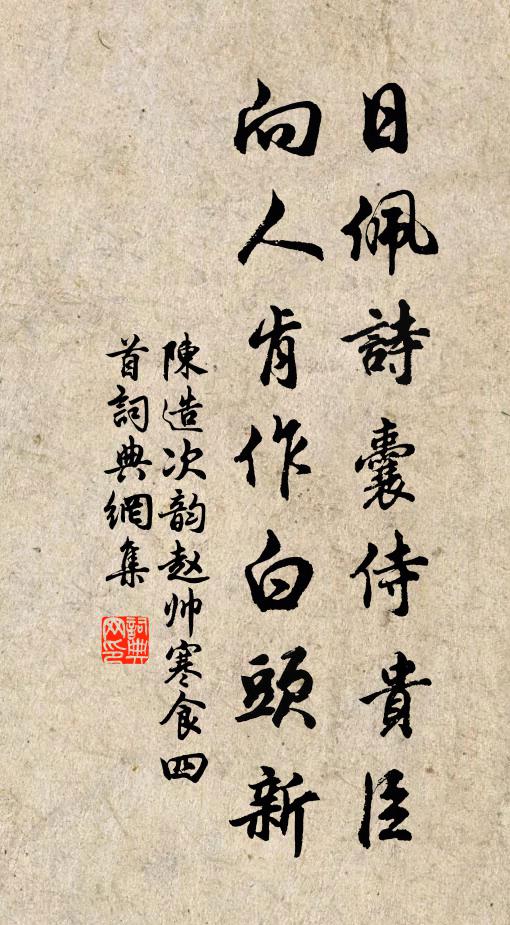 日佩詩囊侍貴臣
向人肯作白頭新
陳造次韵赵帅寒食四
首詞典網集
詞典
网印